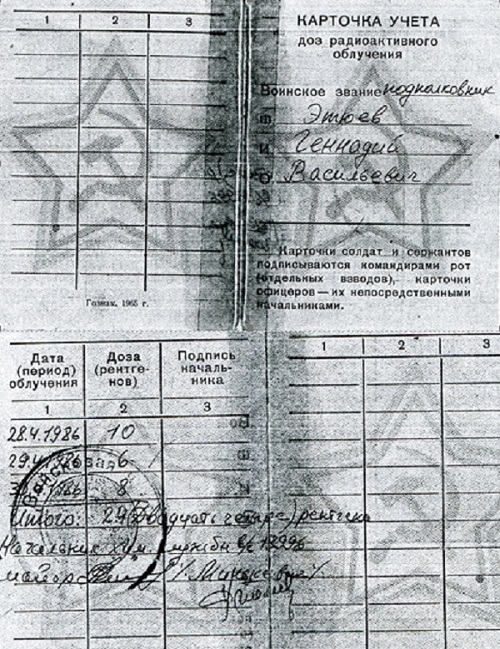 1 2 3
Гознак. 1965 г.
КАРТОЧКА УЧЕТА
ДОЗ РАДИОАКТИВНОГО
ОБЛУЧЕНИЯ
Воинское звание подполковник
Ф Этюев
И Геннадий
О Васильевич
Карточки солдат и сержантов
подписываются командирами рот
(отдельных взводов), карточки
офицеров — их непосредственными
начальниками.
Дата (период) облучения Доза (рентгенов) Подпись начальника
1 2 3
28.4.1986 10
29.4.1986 6
1986 8
Итого: 24 (двадцать четыре) рентгена
Начальник хим. службы в/ч
майор
Войсковая
1 2 3